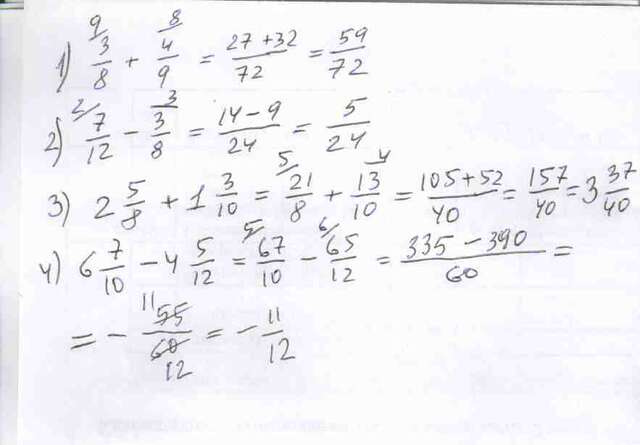 1) 9/ 3/8 + 8/ 4/9 = (27+32)/72 = 59/72
2) 2/ 7/12 - 3/ 3/8 = (14-9)/24 = 5/24
3) 2 5/8 + 1 3/10 = 5/ 21/8 + 4/ 13/10 = (105+52)/40 = 157/40 = 3 37/40
4) 6 7/10 - 4 5/12 = 5/ 67/10 - 6/ 65/12 = (335-390)/60 =
= - 11 55/60 12 = - 11/12